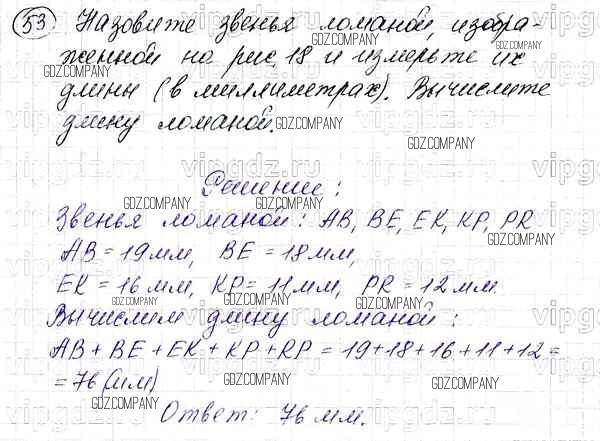 53 Назовите звенья ломаной, изобра-
женной на рис. 18 и измерьте их
длины (в миллиметрах). Вычислите
длину ломаной.
Решение:
Звенья ломаной: AB, BE, EK, KP, PR
AB = 19 мм, BE = 18 мм,
EK = 16 мм, KP = 11 мм, PR = 12 мм.
Вычислим длину ломаной:
AB + BE + EK + KP + RP = 19+18+16+11+12 =
= 76 (мм)
Ответ: 76 мм.